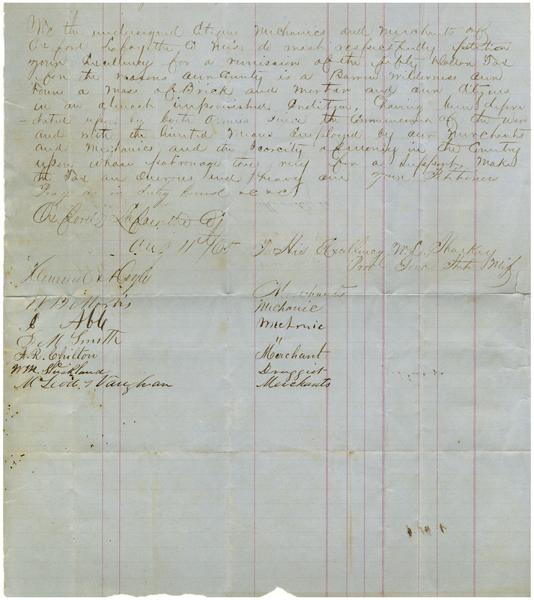 We the undersigned Citizens Mechanics and Merchants of
Oxford Lafayette Co Miss do most respectfully petition
your Excellency for a remission of the fifty Dollar Tax
upon the reasons our County is a Barren wilderness our
Town a mass of Brick and mortar and our Citizens
in an almost impoverished Condition, having been depre
-dated upon by both Armies since the Commencement of the War
and with the limited means Employed by our Merchants
and Mechanics and the Scarcity of money in the Country
upon whose patronage they rely for a Support, Make
the Tax an Onerous and heavy one your Petitioners
Pray as in duty bound &c &c
Oxford Lafayette Co
Aug 11th /65
To His Excellency W. L. Sharkey
Prov Gov State Miss
Merchants
Mechanic
Mechanic
J. M. Smith "
A. R. Chilton Merchant
Wm Strickland Druggist
McLeod & Vaughan Merchants